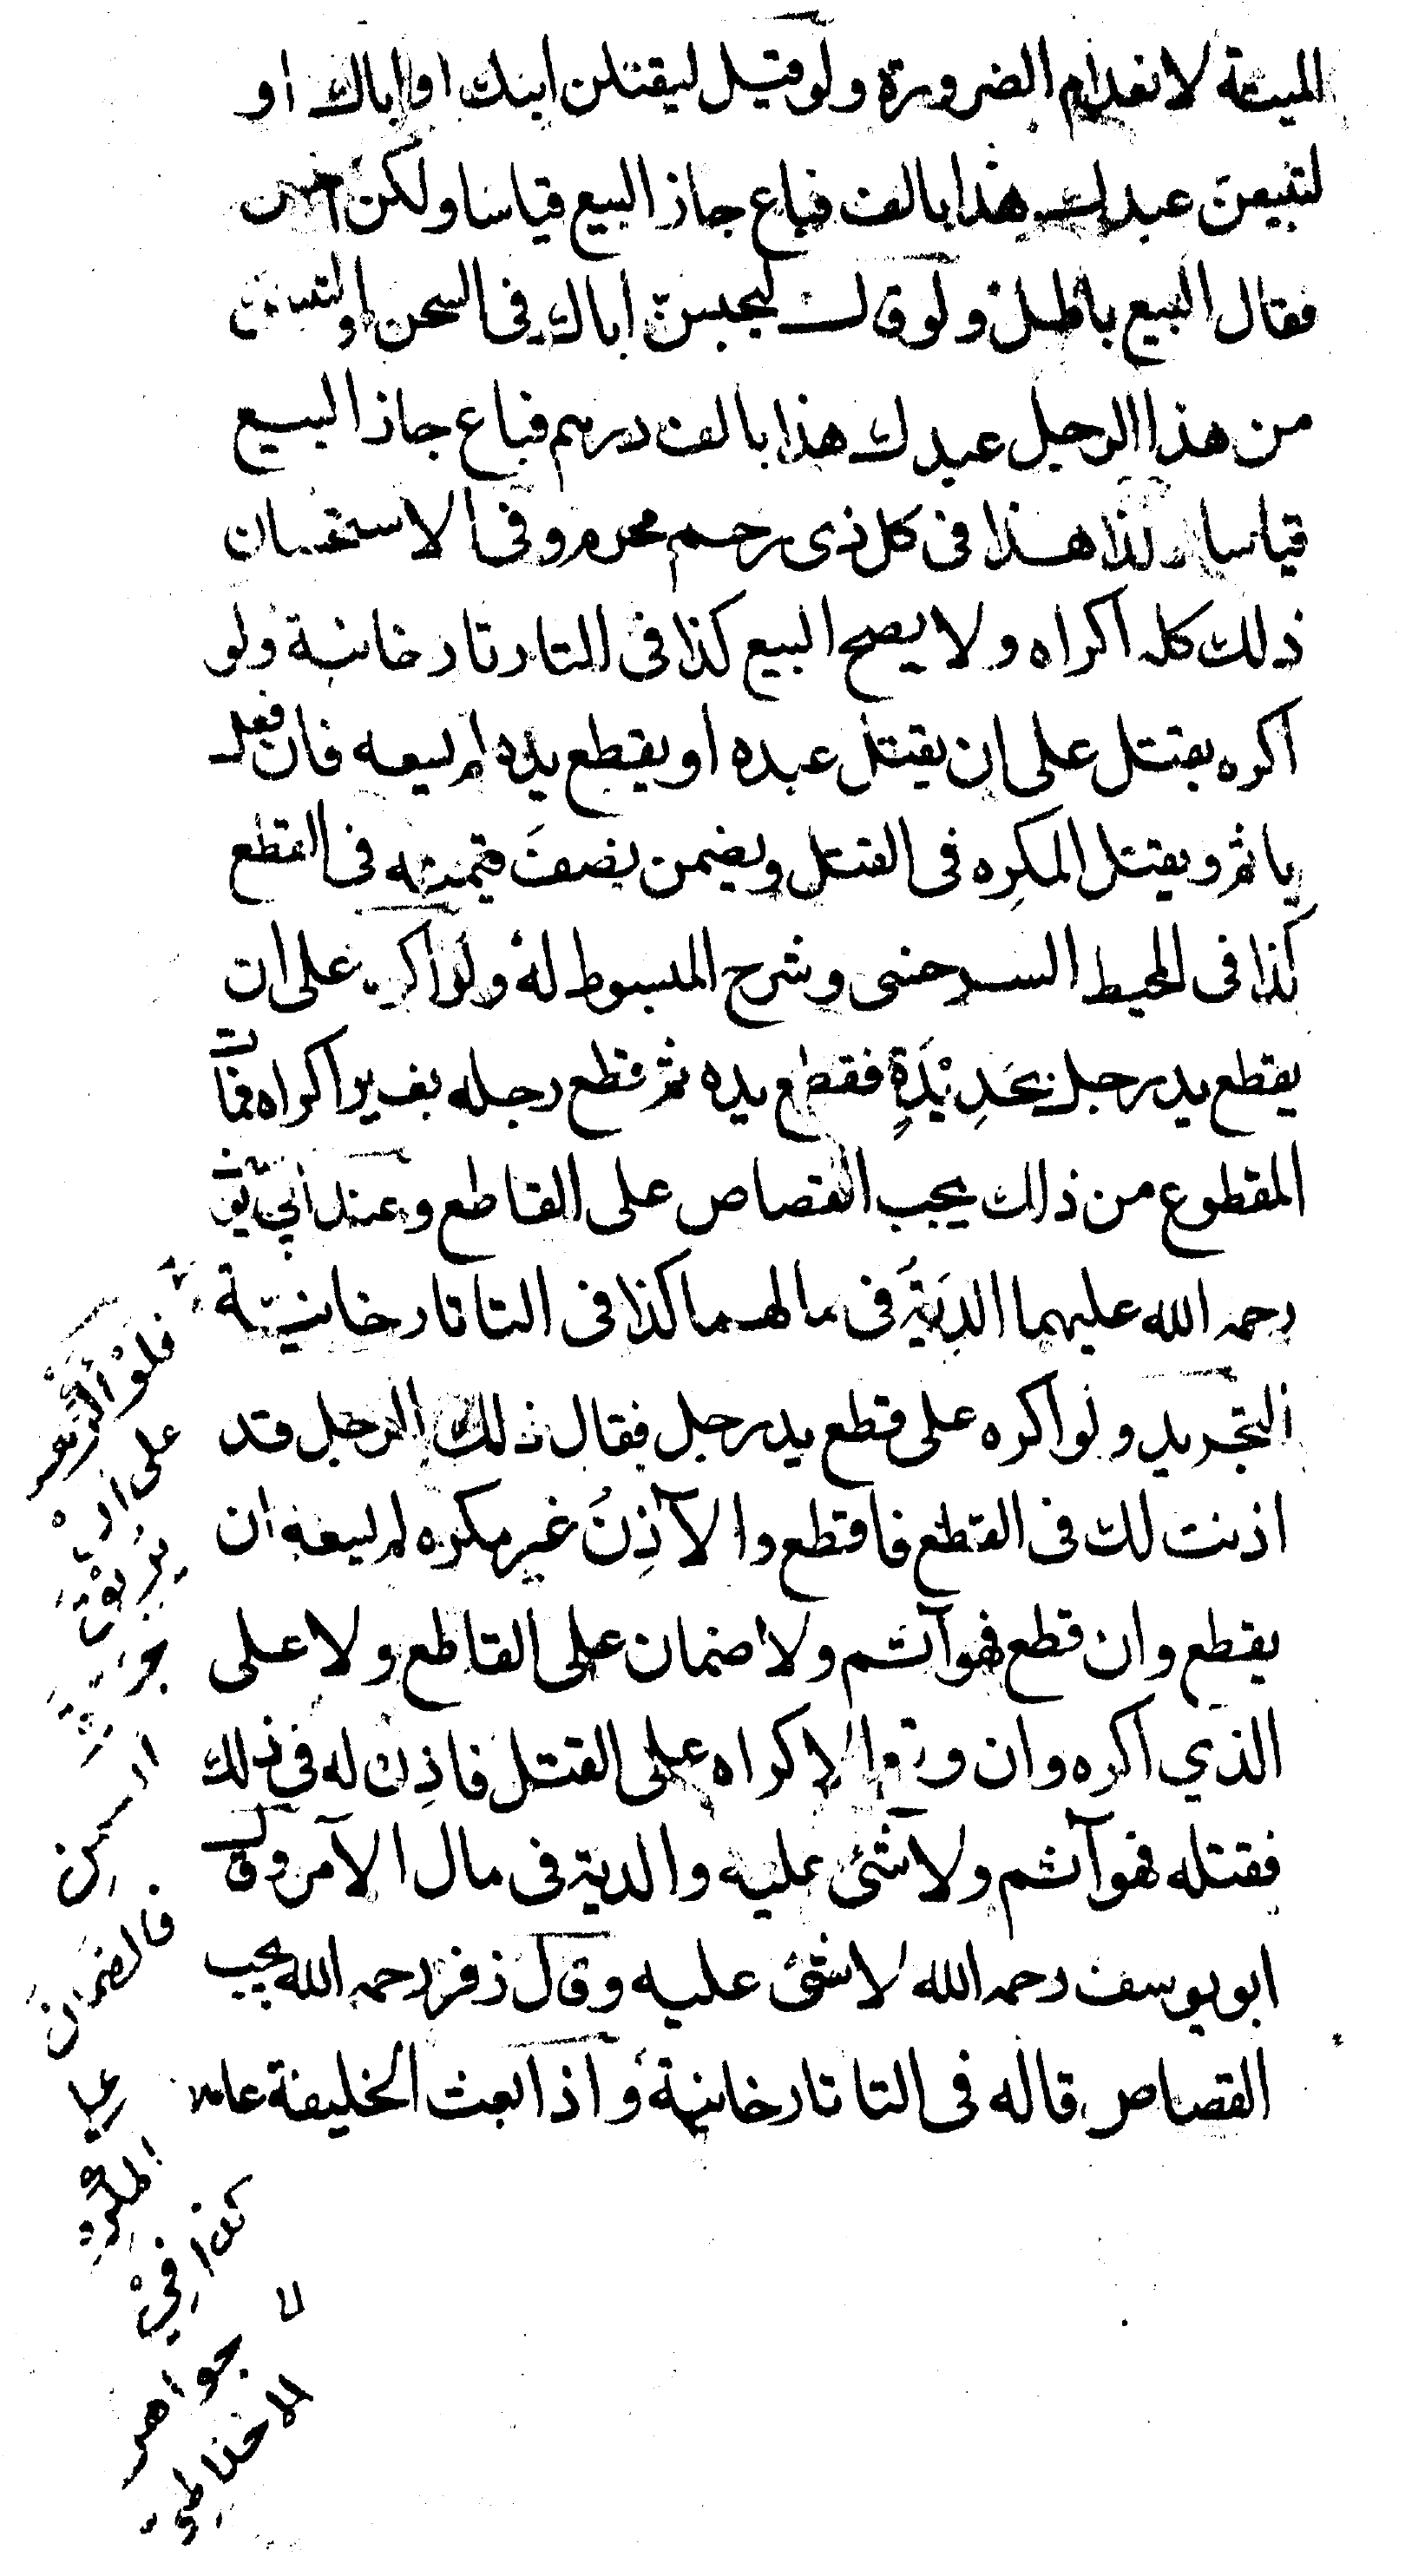 الميتة لانعدام الضرورة ولو قيل ليقتلن ابنك او اباك او
لتبيعن عبدك هذا بالف فباع جاز البيع قياسا ولكن
فقال البيع باطل ولو قال ليحبسن اباك في السجن او
من هذا الرجل عبدك هذا بالف درهم فباع جاز البيع
قياسا وكذا هذا في كل ذي رحم محرم وفي الاستحسان
ذلك كله اكراه ولا يصح البيع كذا في التارتارخانية ولو
اكره بقتل على ان يقتل عبده او يقطع يده لم يسعه فان فعل
ياثم ويقتل المكرِه في القتل ويضمن نصفَ قيمته في القطع
كذا في المحيط السرخسي وشرح المبسوط له ولو اكره على ان
يقطع يد رجل بحَدِيْدَةٍ فقطع يده ثم قطع رجله بغير اكراه فمات
المقطوع من ذلك يجب القصاص على القاطع وعند ابي يوسف
رحمه الله عليهما الدِيَةُ في مالهما كذا في التاتارخانيّة
التجريد ولو اكره على قطع يد رجل فقال ذلك الرجل قد
اذنت لك في القطع فاقطع والآذِنُ غير مكره لم يسعه ان
يقطع وان قطع فهو آثم ولا ضمان على القاطع ولا على
الذي اكره وان وقع الاكراه على القتل فاذِن له في ذلك
فقتله فهو آثم ولا شئ عليه والدية في مال الآمر وقال
ابو يوسف رحمه الله لا شئ عليه وقال زفر رحمه الله يجب
القصاص قاله في التاتارخانية واذا بعث الخليفة عاملا
فلوْ
على ان
فالضمان
على
المكْرِهِ
كذا فِيْ
جواهر
الاخلاطي